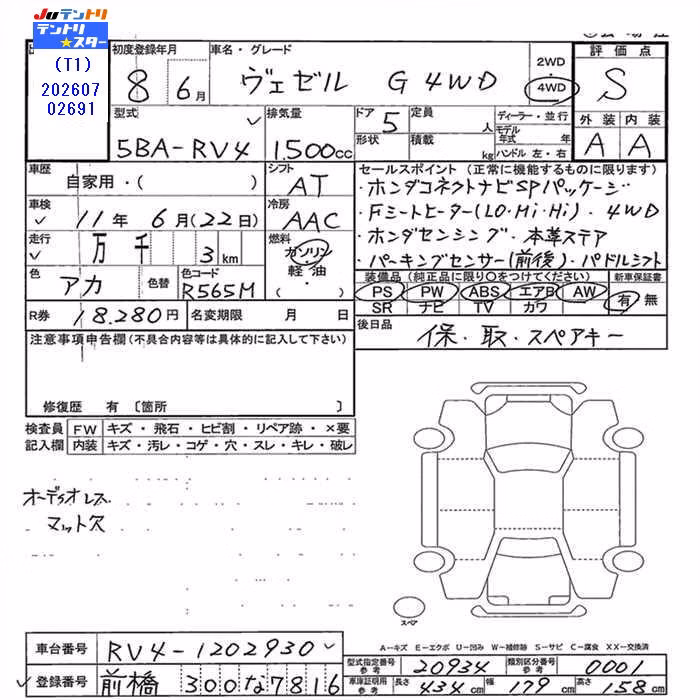 Juテントリ
テントリ
★スター
(T1)
202607
02691
初度登録年月
8 6月
車名・グレード
ヴェゼル G 4WD
2WD
・
4WD
評価点
S
外装 内装
A A
型式
5BA-RV4
排気量
1.500cc
ドア 5
形状
定員 人
積載 kg
ディーラー・並行
モデル年式 年
ハンドル 左・右
車歴
自家用・( )
シフト
AT
車検
11年 6月(22日)
冷房
AAC
走行
万 千 3 km
燃料
ガソリン
軽・油
・( )
色
アカ
色替
色コード
R565M
セールスポイント (正常に機能するものに限ります)
・ホンダコネクトナビSPパッケージ
・Fシートヒーター(LO・Mi・Hi)・4WD
・ホンダセンシング・本革ステア
・パーキングセンサー(前後)・パドルシフト
装備品(純正品に限り○をつけてください)
PS PW ABS エアB AW
SR ナビ TV カワ
新車保証書
有 無
R券 18.280円
名変期限 月 日
後日品
保・取・スペアキー
注意事項申告欄(不具合内容等は具体的に記入して下さい)
修復歴 有〔箇所 〕
検査員
記入欄
FW キズ・飛石・ヒビ割・リペア跡・×要
内装 キズ・汚レ・コゲ・穴・スレ・キレ・破レ
オーディオレス
マット欠
スペア
A-キズ E-エクボ U-凹み W-補修跡 S-サビ C-腐食 XX-交換済
車台番号 RV4-1202930
登録番号 前橋 300な7816
型式指定番号 参考 20934
類別区分番号 参考 0001
車庫証明用 参考 長さ 434cm 幅 179cm 高さ 158cm